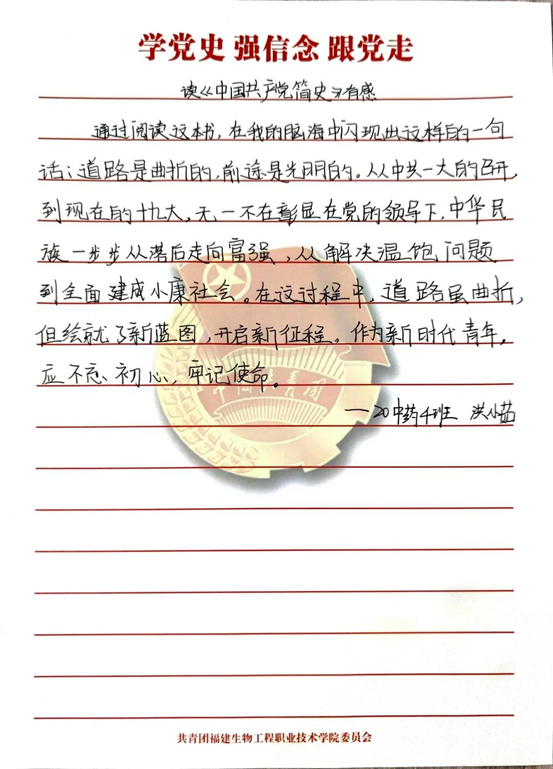 学党史 强信念 跟党走
读《中国共产党简史》有感
通过阅读这本书，在我的脑海中闪现出这样的一句
话：道路是曲折的，前途是光明的。从中共一大的召开，
到现在的十九大，无一不在彰显在党的领导下，中华民
族一步步从落后走向富强，从解决温饱问题
到全面建成小康社会。在这过程中，道路虽曲折，
但绘就了新蓝图，开启新征程。作为新时代青年，
应不忘初心，牢记使命。
—20中药4班 洪小茹
中国共青团
共青团福建生物工程职业技术学院委员会